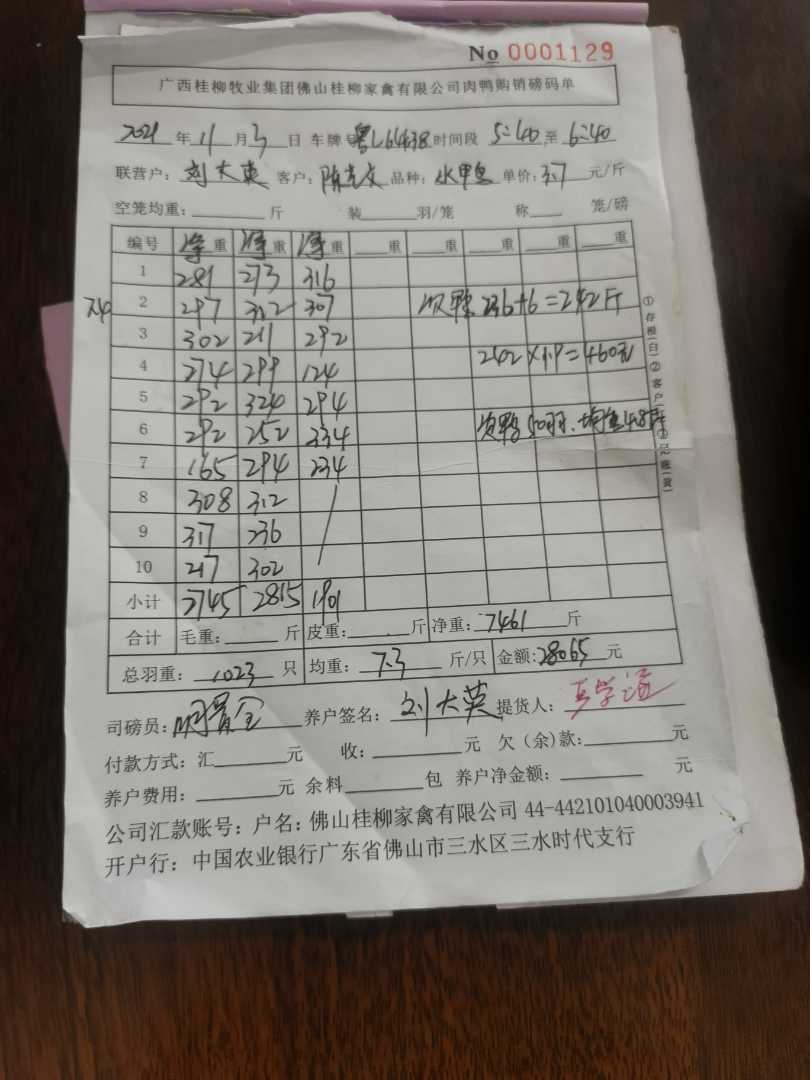 No 0001129
广西桂柳牧业集团佛山桂柳家禽有限公司肉鸭购销磅码单
2021年11月3日 车牌号粤L6438 时间段 5:40至6:40
联营户:刘大英 客户:陈 品种:水鸭 单价:3.7元/斤
空笼均重:斤 装羽/笼 称笼/磅
编号 净重 净重 净重 重 重 重 重 重
1 281 273 316
2 297 312 307 次鸭 236+6=242斤
3 302 211 292
4 274 299 124 242×1.9=460元
5 292 324 294
6 292 252 334 次鸭50羽、均重4.8斤
7 165 294 234
8 308 312
9 317 236
10 217 302
小计 2745 2815 1901
合计 毛重:斤 皮重:斤 净重:7461斤
总羽重:1023只 均重:7.3斤/只 金额:28065元
司磅员: 养户签名:刘大英 提货人:
付款方式:汇元 收:元 欠(余)款:元
养户费用:元 余料包 养户净金额:元
公司汇款账号:户名:佛山桂柳家禽有限公司 44-442101040003941
开户行:中国农业银行广东省佛山市三水区三水时代支行
①存根(白)②客户
③记账(黄)